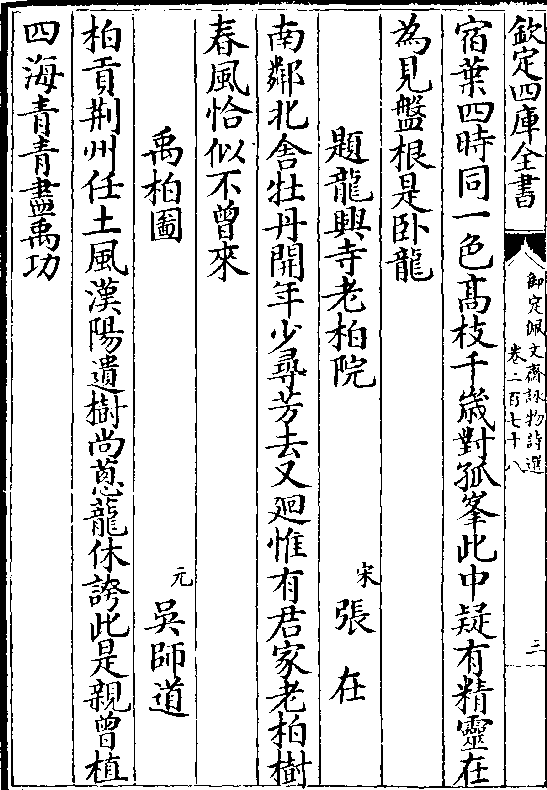 欽定四庫全書
御定佩文齋詠物詩選
卷二百七十八
三
宿葉四時同一色髙枝千嵗對孤峯此中疑有精靈在
為見盤根是卧龍
題龍興寺老柏院
宋
張在
南鄰北舎牡丹開年少尋芳去又廻惟有君家老柏樹
春風恰似不曾來
禹柏圖
元
吳師道
柏貢荆州任土風漢陽遺樹尚蔥龍休誇此是親曾植
四海青青盡禹功